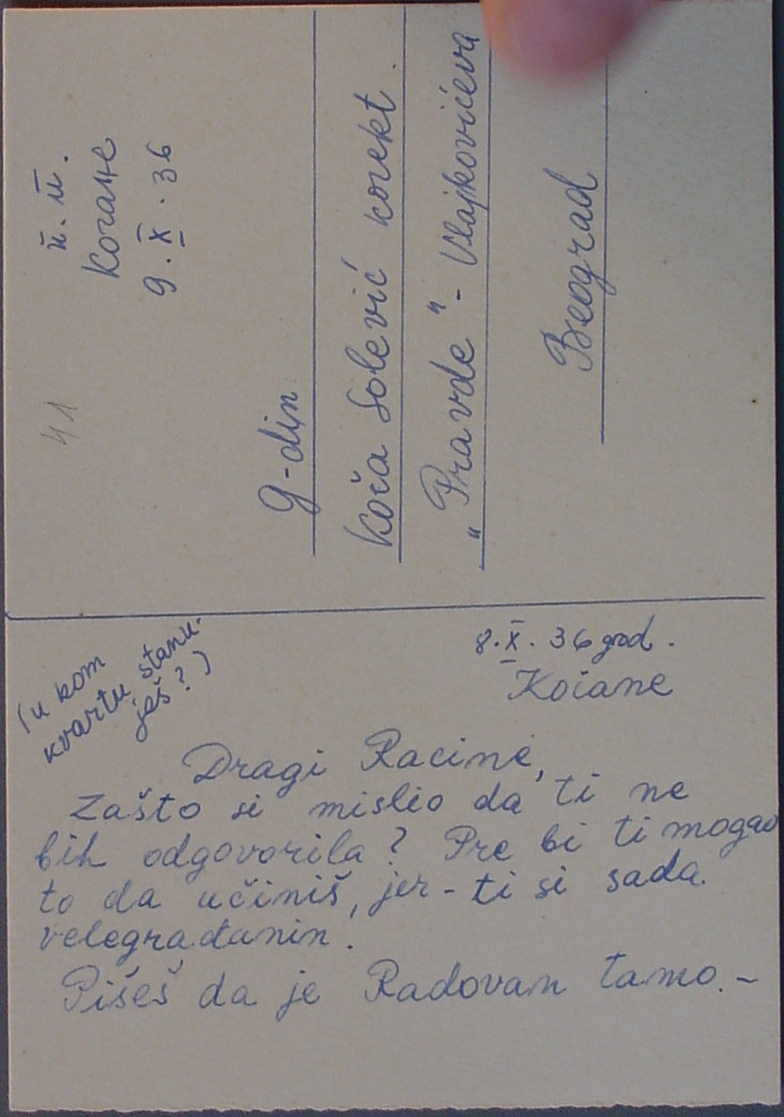 п.п.
Kočane
9.X.36
41
g-din
Koča Solević korekt.
„Pravde" - Vlajkovićeva
Beograd
(u kom
kvartu stanu-
ješ?)
8.X.36 god.
Kočane
Dragi Racine,
Zašto si mislio da ti ne
bih odgovorila? Pre bi ti mogao
to da učiniš, jer - ti si sada
velegrađanin.
Pišeš da je Radovan tamo. -